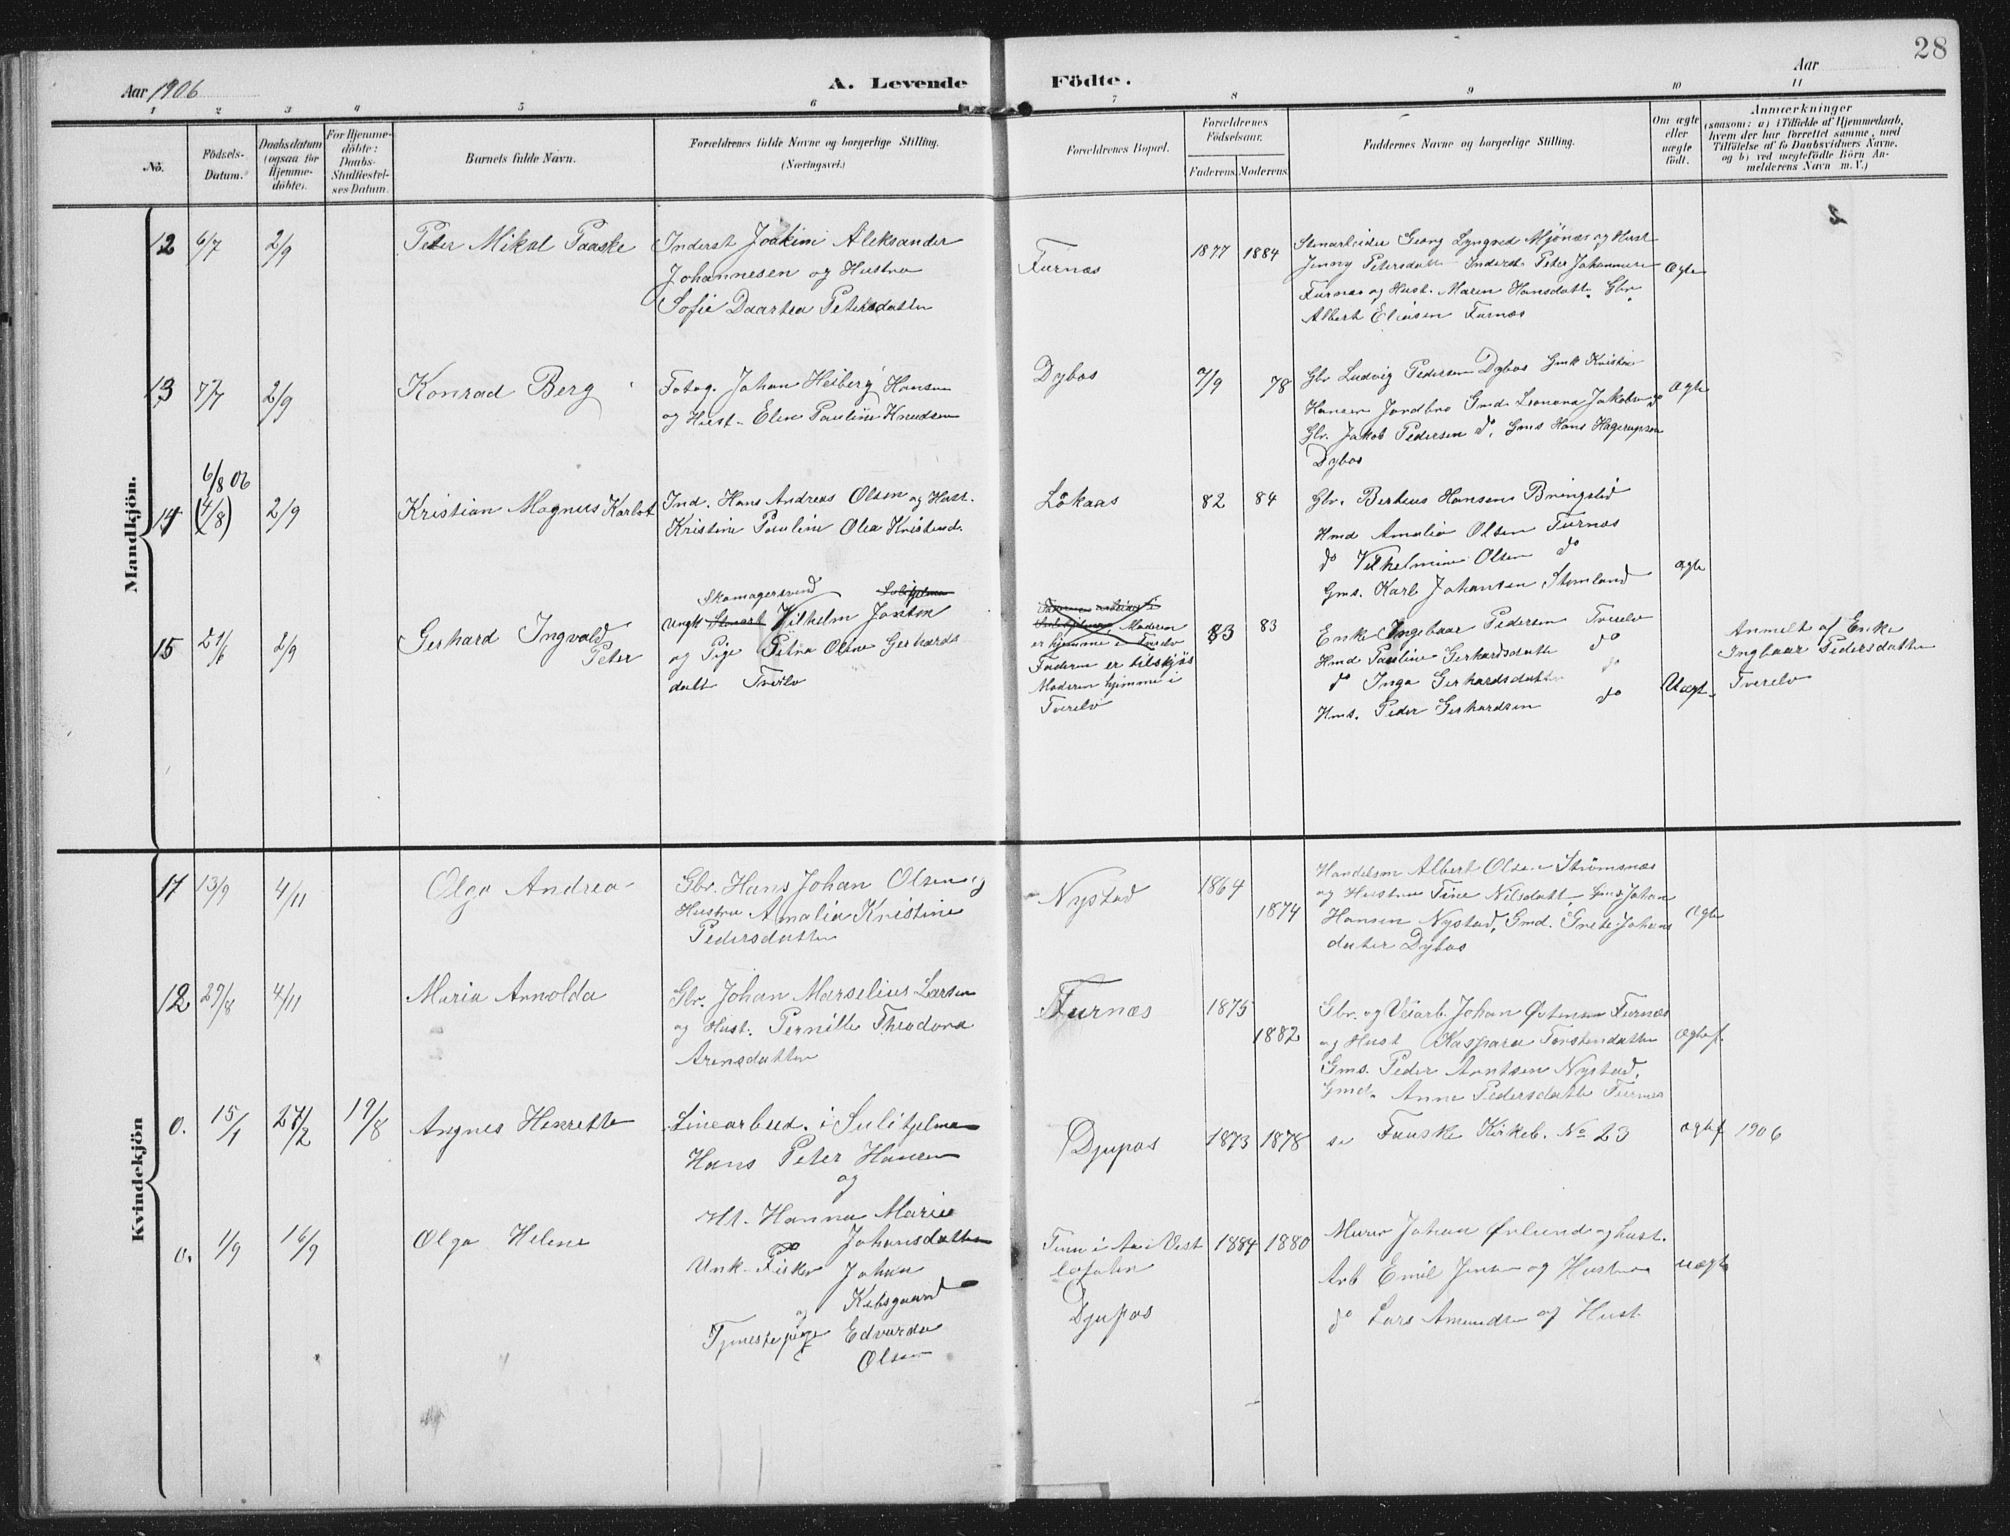 28
Aar 1906
A. Levende Födte.
Aar
1 2 3 4 5 6 7 8 9 10 11
No.
Födsels-Datum.
Daabsdatum (ogsaa for Hjemme-döbte).
For Hjemme-döbte: Daabs-Stadfæstel-ses-Datum.
Barnets fulde Navn.
Forældrenes fulde Navne og borgerlige Stilling. (Næringsvei.)
Forældrenes Bopæl.
Forældrenes Födselsaar.
Faderens. Moderens.
Faddernes Navne og borgerlige Stilling.
Om ægte eller uægte födt.
Anmærkninger
(saasom: a) i Tilfælde af Hjemmedaab, hvem der har forrettet samme, med Tilföielse af to Daabsvidners Navne, og b) ved uægtefödte Börn An-melderens Navn m. V.)
Mandkjön.
12 6/7 2/9 Peter Mikal Paaske
Inderst Joakim Aleksander
Johannesen og Hustru
Sofie Daartea Petersdatter
Furnæs 1877 1884
Stenarbeider Georg Lyngved Mjönæs og Hust
Jenny Petersdatt Inderst Peter Johannesen
Furnæs og Hust. Maren Hansdatt. Gbr
Albert Eliasen Furnæs
Ægte
13 7/7 2/9 Konrad Berg
Fotog. Johan Heiberg Hansen
og Hust. Elen Pauline Knudsen
Dybos 7/9 78
Gbr Ludvig Pedersen Dybos Gmk Kristin
Hansen Jordbro Gmd Leonora Jakobs do
Gbr. Jakob Pedersen do, Gms Hans Hagerupsen
Dybos
Ægte
14 6/8 06 (4/8) 2/9 Kristian Magnus Karlot
Ind. Hans Andreas Olsen og Hust.
Kristine Pauline Olea Kristensd.
Lökaas 82 84
Gbr. Berteus Hansen Bringslid
Hmd Amalia Olsen Furnæs
do Vilhelmine Olsen do
Gms. Karl Johansen Stemland
ægte
15 21/6 2/9 Gerhard Ingvald
Peter
Skomagersvend
Ungk Vilhelm Jonsen
og Pige Petra Oline Gerhards
datt Tverelv
Moderen
er hjemme i Tverelv
Faderen er tilskjös
Moderen hjemme i
Tverelv
83 83
Enke Ingebaar Pedersen Tverelv
Hmd Pauline Gerhardsdatter do
do Inga Gerhardsdatter do
Hms. Peder Gerhardsen do
Uægt.
Anmelt af Enke
Ingbaar Pedersdatter
Tverelv
Kvindekjön
11 13/9 4/11 Olga Andrea
Gbr. Hans Johan Olsen og
Hustru Amalia Kristine
Pedersdatter
Nystad 1864 1874
Handelsm Albert Olsen Strömsnæs
og Hustru Tine Nilsdatt Gms Johan
Hansen Nystad, Gmd. Grete Johans
datter Dybos
Ægte
12 29/8 4/11 Maria Arnolda
Gbr. Johan Marselius Larsen
og Hust. Pernille Theodora
Arensdatter
Furnæs 1875 1882
Gbr. og Veiarb. Johan Östensen Furnæs
og Hust Kaspara Torstendatter
Gms. Peder Arntsen Nystad,
Gmd. Anne Pedersdatter Furnæs
ægtef
0. 15/1 27/2 19/8 Angnes Henrette
Linearbeid. i Sulitjelma
Hans Peter Hansen
og
Ht. Hanna Marie
Johansdatter
Djupos 1873 1878
se Fauske Kirkeb. No 23
ægtef 1906
0. 1/9 16/9 Olga Helene
Unk. Fisker Johan
Kibsgaard
og
Tjenestepige Edvarda
Olsen
Tinn i Aa i Vest
lofoten
Djupos
1884 1880
Murer Johan Örlund og hust.
Arb Emil Jensen og Hustru
do Lars Amundsen og Hust
uægte